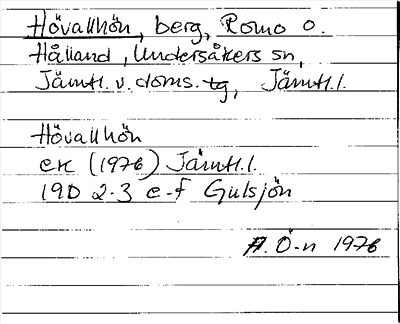 Hövallhön, berg, Romo o.
Hålland, Undersåkers sn,
Jämtl. v. doms. tg, Jämtl.l.
Hövallhön
ek (1976) Jämtl.l.
19D 2-3 e-f Gulsjön
A. Ö-n 1976